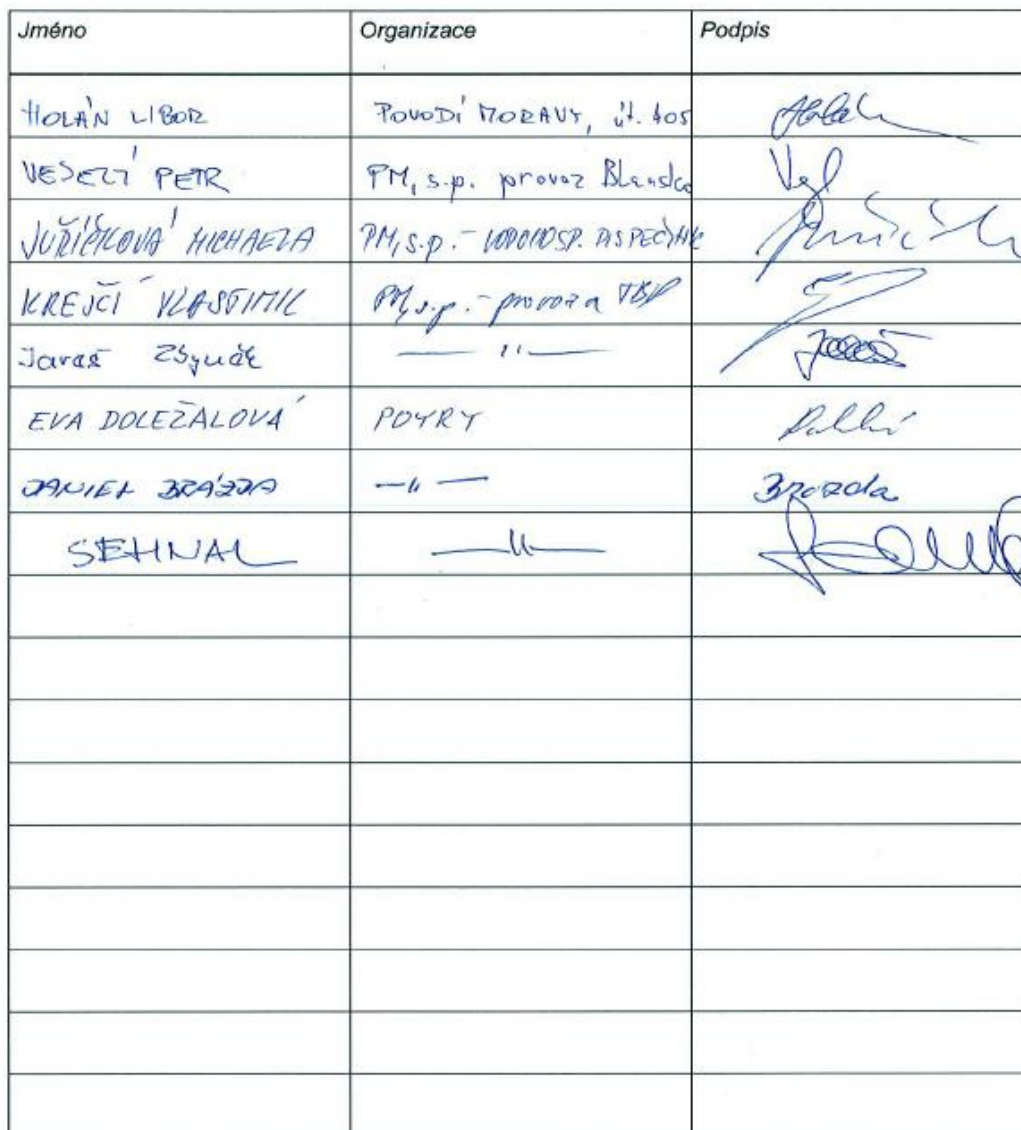 Jméno Organizace Podpis
HOLÁN LIBOR POVODÍ MORAVY, út. 405
VESELÝ PETR PM, s.p. provoz Blansko
JUŘÍČKOVÁ MICHAELA PM, s.p. - VODOHOSP. DISPEČINK
KREJČÍ VLASTIMIL PM, s.p. - provoz a TBD
Jaraš Zbyněk — " —
EVA DOLEŽALOVÁ POYRY
DANIEL BRÁZDA — " — Brazda
SEHNAL — " —